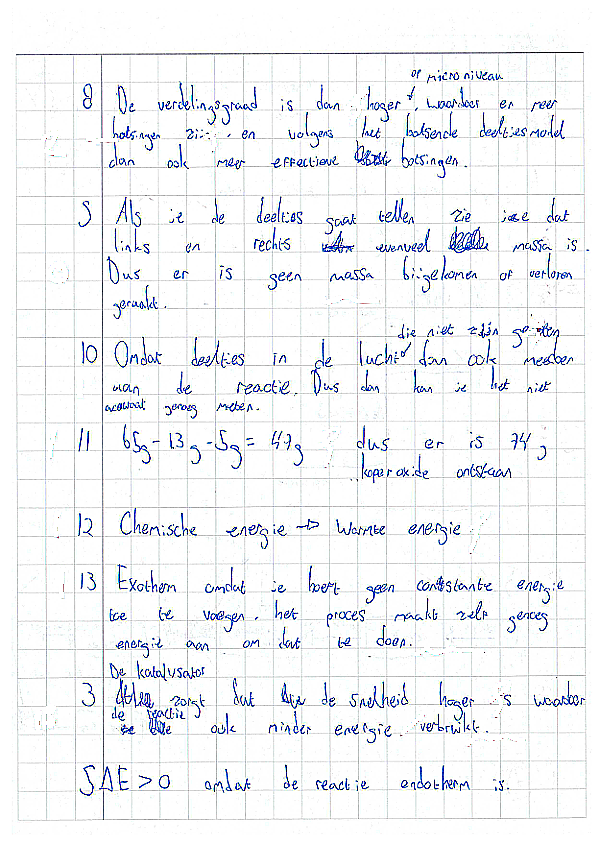 op microniveau
8 De verdelingsgraad is dan hoger, waardoor er meer
botsingen zijn en volgens het botsende deeltjesmodel
dan ook meer effectieve botsingen.
9 Als je de deeltjes gaat tellen zie je dat
links en rechts evenveel massa is.
Dus er is geen massa bijgekomen of verloren
geraakt.
die niet zijn gemeten
10 Omdat deeltjes in de lucht dan ook meedoen
aan de reactie. Dus dan kan je het niet
accuraat genoeg meten.
11 65g - 13g - 5g = 47g dus er is 74g
koperoxide ontstaan
12 Chemische energie → Warmte energie
13 Exotherm omdat je hoeft geen constante energie
toe te voegen. het proces maakt zelf genoeg
energie aan om dat te doen.
De katalysator
3 zorgt dat de snelheid hoger is waardoor
de reactie ook minder energie verbruikt.
5 ΔE > 0 omdat de reactie endotherm is.